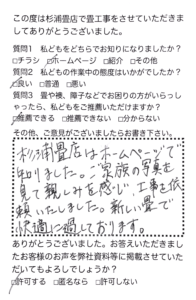 この度は杉浦畳店で畳工事をさせていただきま
してありがとうございました。
質問1 私どもをどちらでお知りになりましたか?
□チラシ ☑ホームページ □紹介 □その他
質問2 私どもの作業中の態度はいかがでしたか?
☑良い □普通 □悪い
質問3 畳や襖、障子などでお困りの方がいらっし
ゃったら、私どもをご推薦いただけますか?
☑推薦できる □推薦できない □分からない
その他、ご意見がございましたらお書き下さい。
杉浦畳店はホームページで
知りました。ご家族の写真を
見て親しみを感じ、工事を依
頼いたしました。新しい畳で
快適に過しております。
ありがとうございました。お答えいただきまし
たお客様のお声を弊社資料等に掲載させていた
だいてもよろしでしょうか?
☑許可する □匿名なら □許可しない